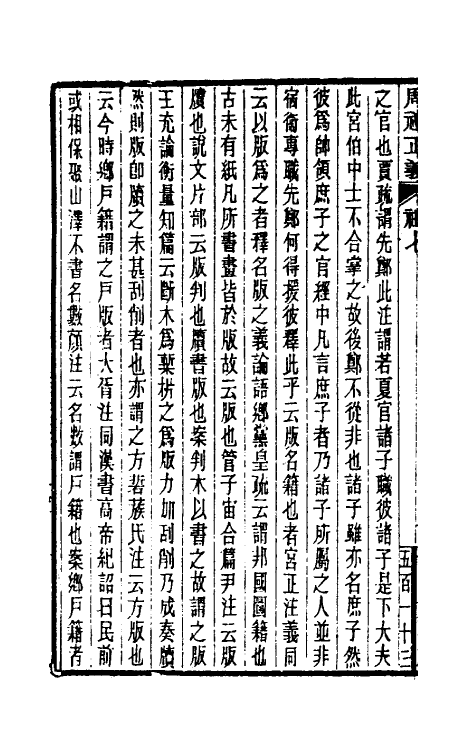 周禮正義 卷七 五百一十三
之官也賈疏謂先鄭此注謂若夏官諸子職彼諸子是下大夫
此宮伯中士不合宰之故後鄭不從非也諸子雖亦名庶子然
彼爲帥領庶子之官經中凡言庶子者乃諸子所屬之人並非
宿衞專職先鄭何得援彼釋此乎云版名籍也者宮正注義同
云以版爲之者釋名版之義論語鄉黨皇疏云謂邦國圖籍也
古未有紙凡所書畫皆於版故云版也管子宙合篇尹注云版
牘也說文片部云版判也牘書版也案判木以書之故謂之版
王充論衡量知篇云斷木爲槧㭊之爲版力加刮削乃成奏牘
然則版卽牘之未甚刮削者也亦謂之方硩蔟氏注云方版也
云今時鄉戶籍謂之戶版者大胥注同漢書高帝紀詔曰民前
或相保聚山澤不書名數顏注云名數謂戶籍也案鄉戶籍者